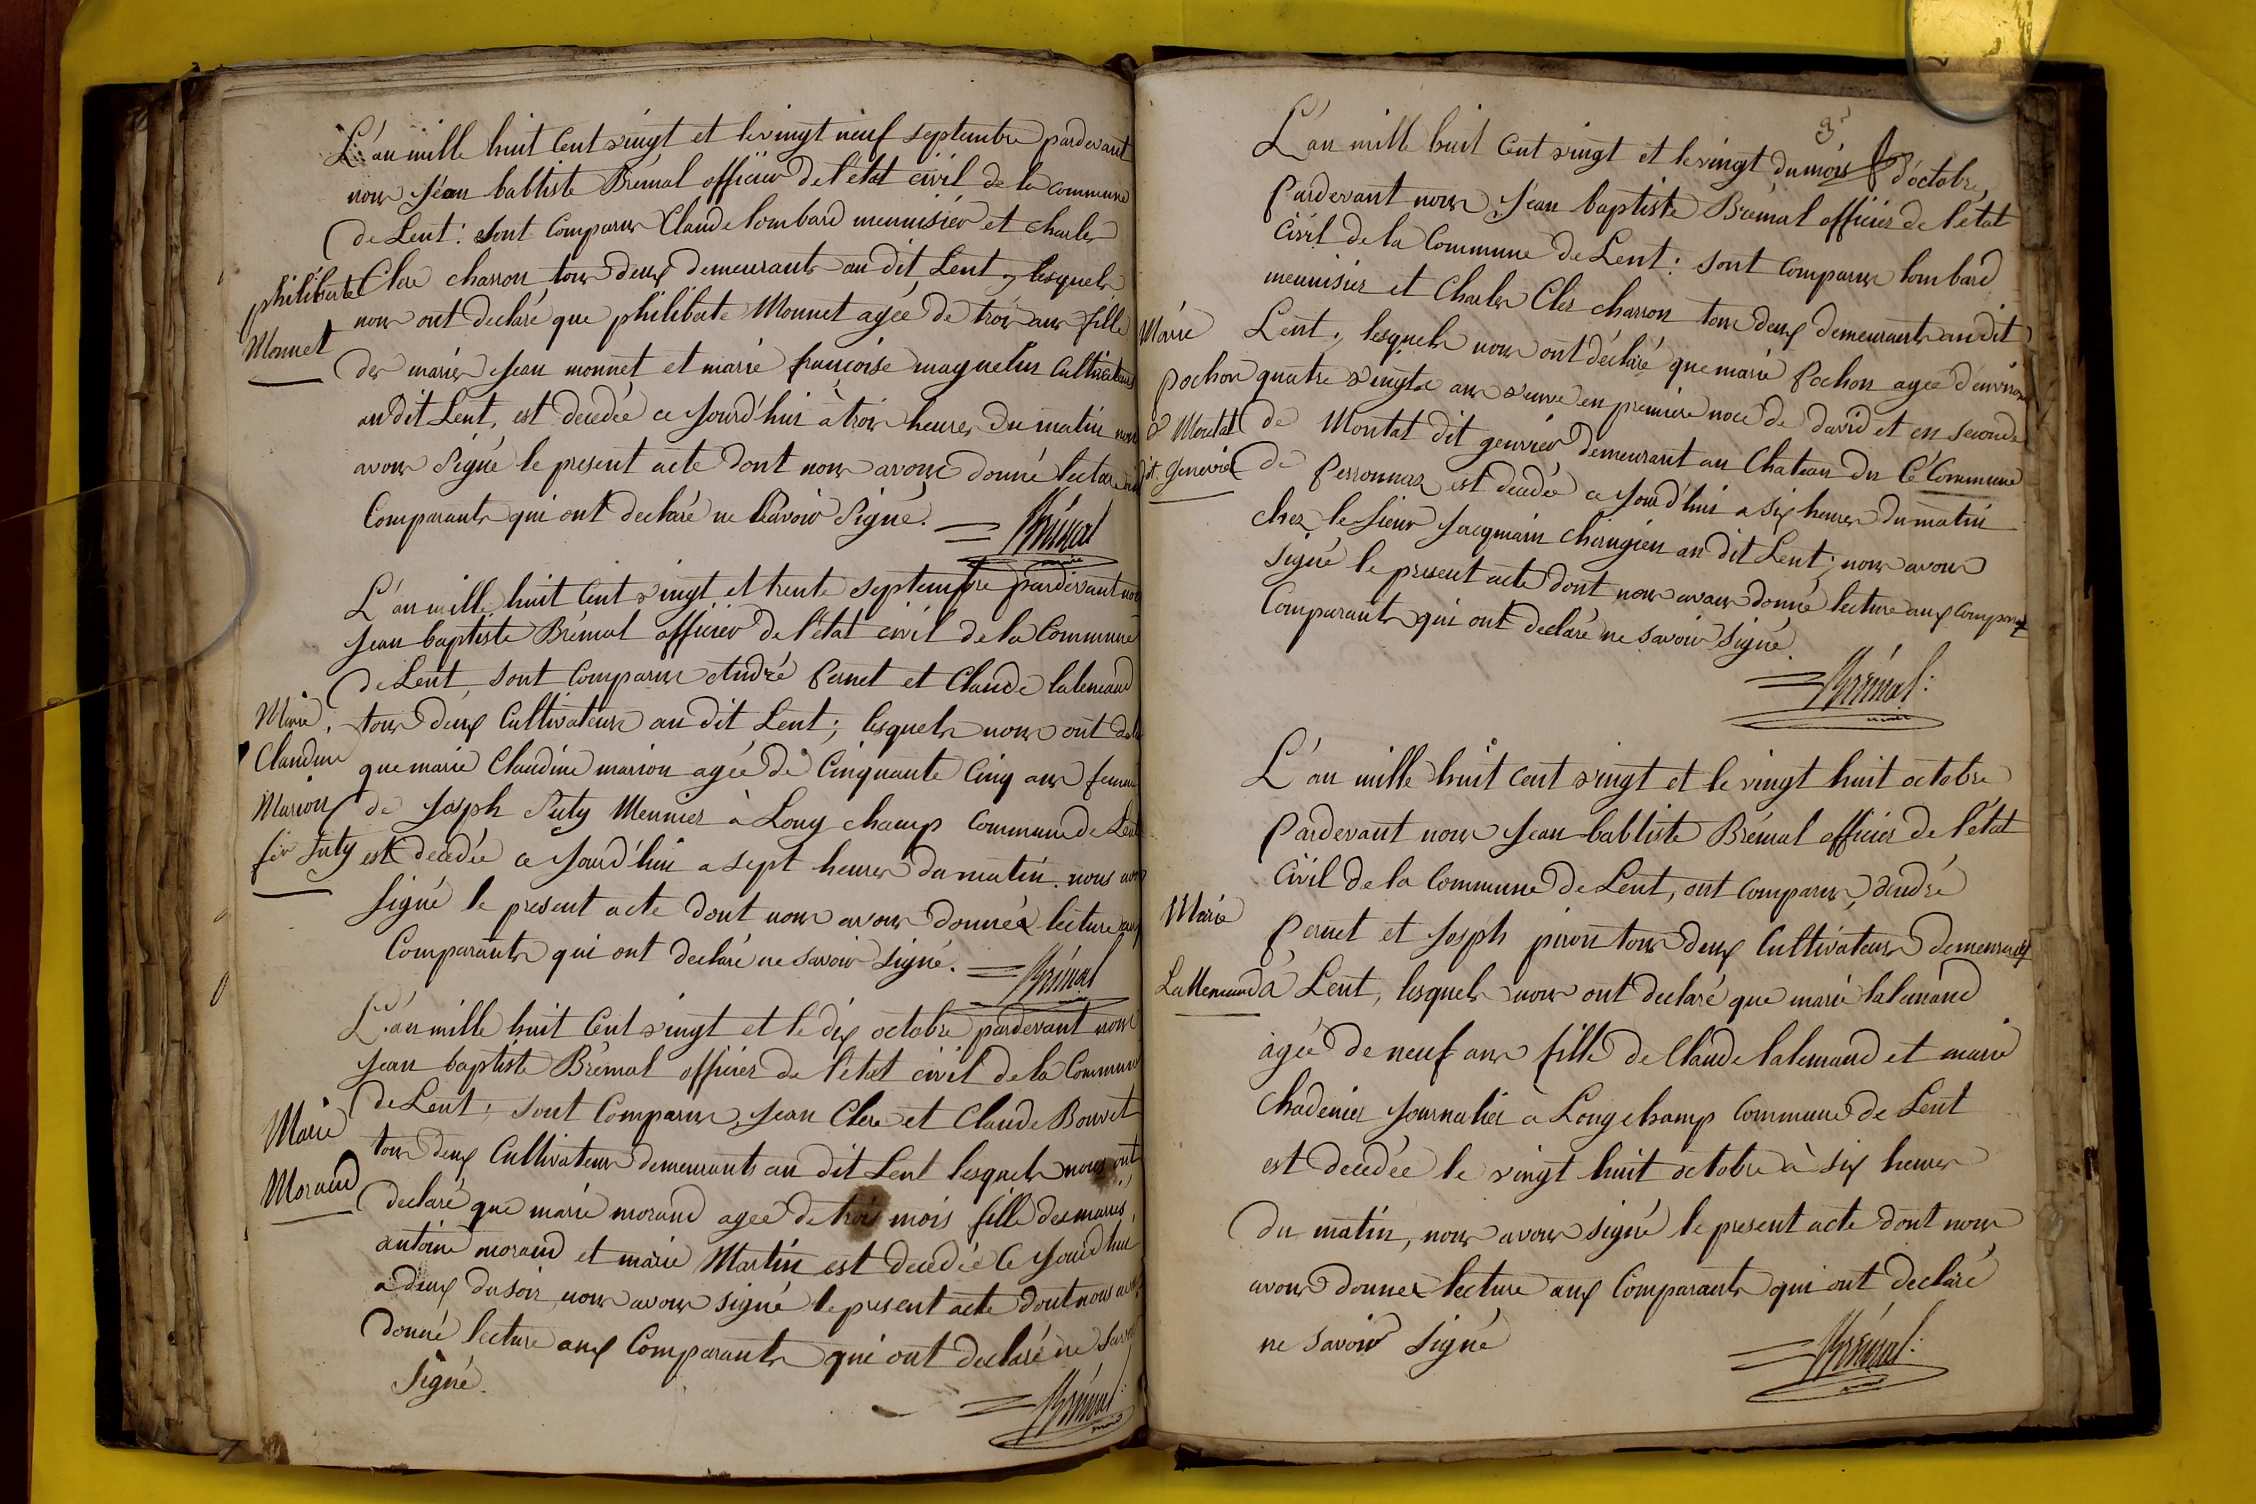 L'an mille huit Cent vingt et le vingt neuf septembre pardevant
nous Jean babtiste Brémal officier de l'état civil de la commune
de Lent : sont Comparus Claude lombard meunisier et charles
philiberte
Monnet
Clere charron tous deux demeurants au dit Lent, lesquels
nous ont declaré que philiberte Monnet agée de trois ans fille
des mariés Jean monnet et marie françoise maguelin Cultivateurs
au dit Lent, est decedée ce Jourd'hui à trois heures du matin nous
avons Signé le present acte dont nous avons donné lecture
Comparants qui ont declaré ne Savoir Signé.
Brémal
maire
L'an mille huit Cent vingt et trente septembre pardevant nous
Jean baptiste Brémal officier de l'état civil de la Commune
de Lent, sont Comparus André Pernet et Claude lalemand
Marie
Claudine
Marion
fe Juty
tous deux Cultivateurs au dit Lent ; lesquels nous ont
que marie Claudine marion agée de Cinquante Cinq ans femme
de Joseph Juty Meunier à Long champ Commune de Lent
est decedée ce Jourd'hui a sept heures du matin. nous avons
signé le present acte dont nous avons donnée lecture aux
Comparants qui ont declaré ne savoir signé.
Brémal
L'an mille huit Cent vingt et le dix octobre pardevant nous
Jean baptiste Brémal officier de l'état civil de la Commune
de Lent, sont Comparus, Jean Clere et Claude Bouvet
Marie
Morand
tous deux Cultivateurs demeurants au dit Lent lesquels nous ont
declaré que marie morand agée de trois mois fille des mariés
antoine morand et marie Martin est decedée Ce Jourd'hui
a deux du soir, nous avons signé le present acte dont nous avons
donné lecture aux Comparants qui ont declaré ne Savoir
Signé.
Brémal
maire
L'an mille huit Cent vingt et le vingt du mois d'octobre,
Pardevant nous Jean baptiste Brémal officier de l'état
Civil de la Commune de Lent : sont Comparus lombard
meunisier et Charles Cler charron tous deux demeurants au dit
Marie
Pochon
dit Genevrier
Lent ; lesquels nous ont déclaré que marie Pochon agée d'environ
quatre vingt ans veuve en premiere noce de david et en seconde
de Montat dit genvrier demeurant au Chateau du Cé Commune
de Perronnas est decedée ce Jourd'hui a six heures du matin
chez le Sieur Jacquain chirugien au dit Lent ; nous avons
signé le present acte dont nous avons donné lecture aux
Comparants qui ont declaré ne savoir signé.
Brémal
maire
L'an mille huit cent vingt et le vingt huit octobre
Pardevant nous Jean babtiste Brémal officier de l'état
Civil de la Commune de Lent, ont comparus, André
Marie
Lallemand
Pernet et Joseph piron tous deux Cultivateurs demeurants
à Lent, lesquels nous ont declaré que marie lalemand
agée de neuf ans fille de Claude lalemand et marie
Chadenier Journalier à Longchamp Commune de Lent
est decedée le vingt huit octobre à six heures
du matin, nous avons signé le present acte dont nous
avons donner lecture aux Comparants qui ont declaré
ne savoir signé
Brémal